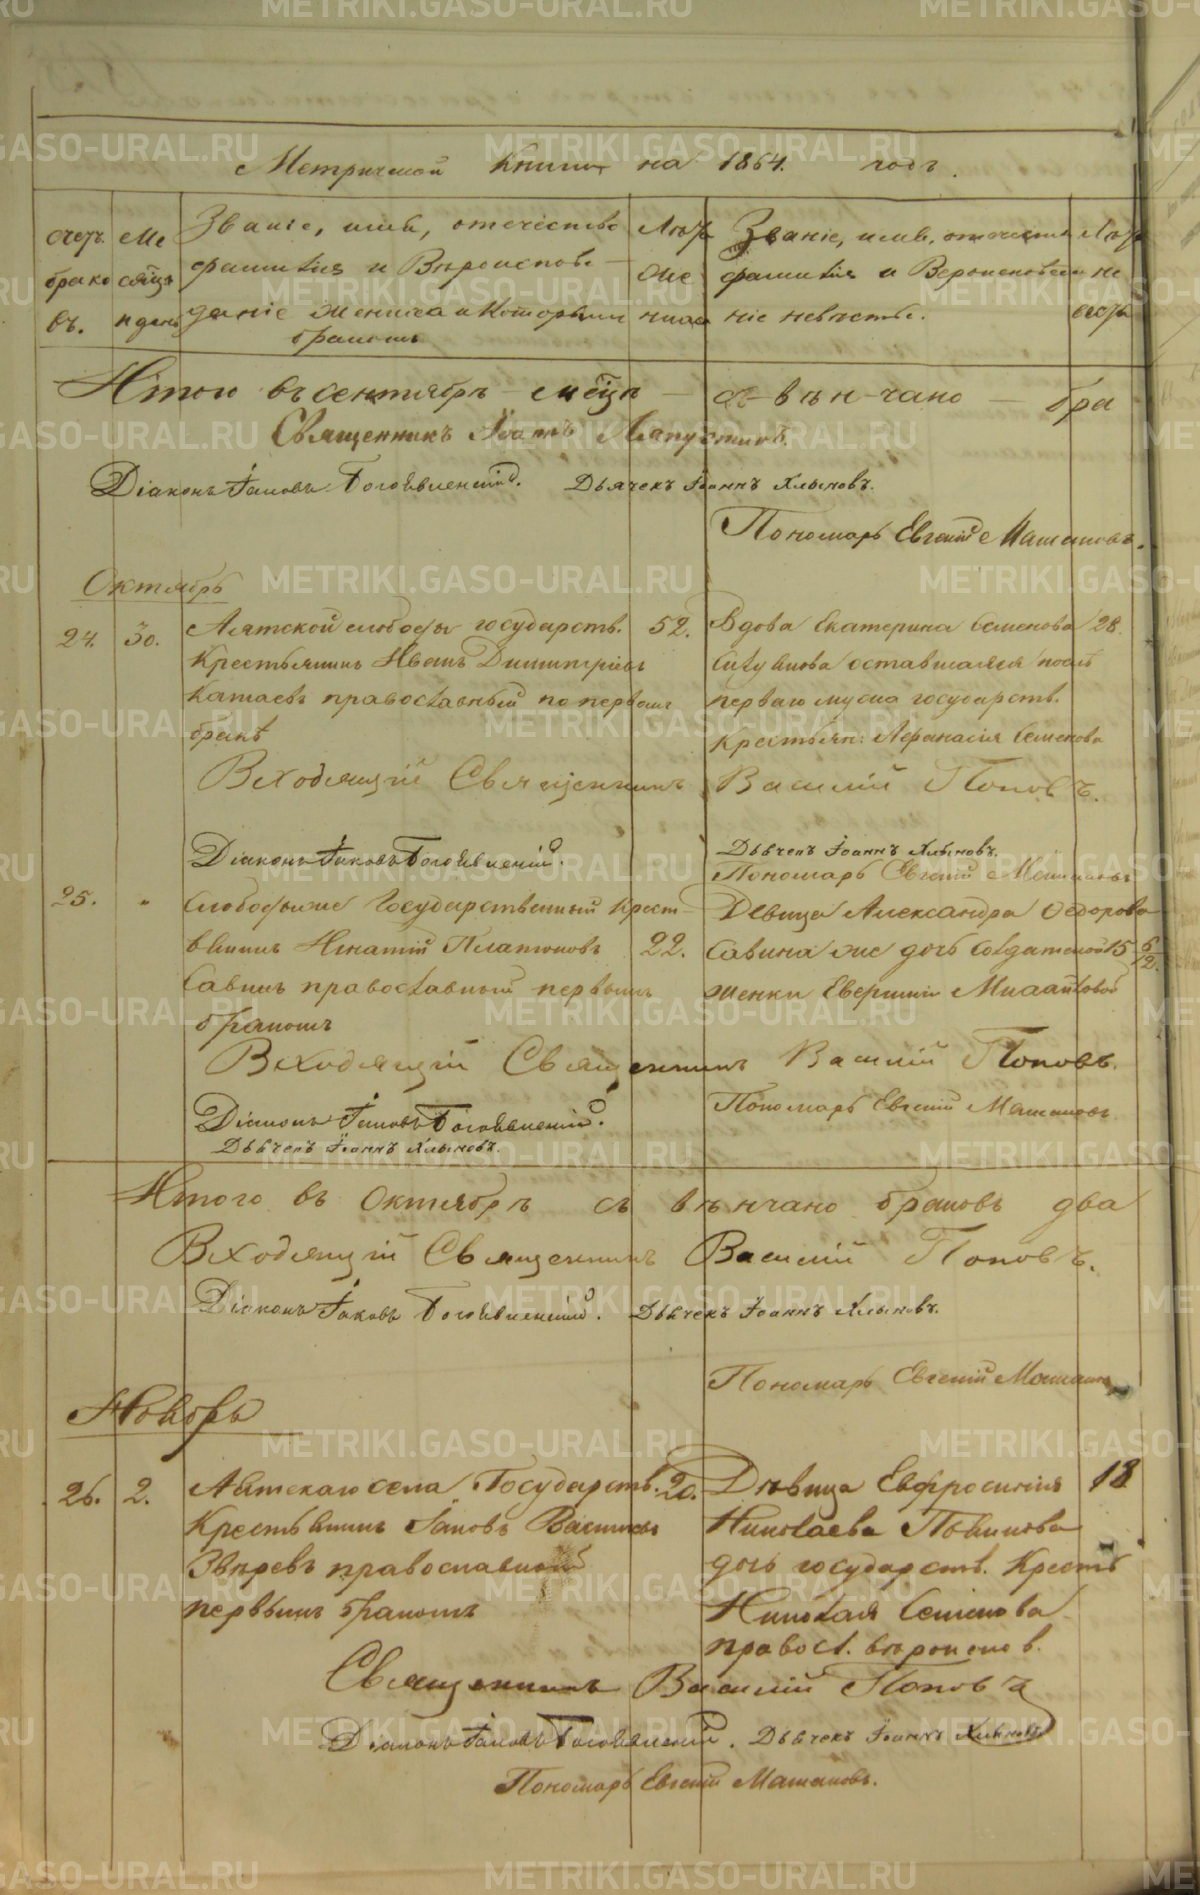 Метрической книги на 1864. годъ.
Счетъ браковъ.
Месяцъ и день
Званіе, имя, отечество
фамилія и Вѣроиспове-
даніе жениха и которымъ
бракомъ
Лѣта жениха
Званіе, имя, отечество
фамилія и Вероисповеда
ніе невѣсты.
Лѣта невесты
Итого въ сентябрѣ - мѣсяцѣ — съ-вѣн-чано — бра
Священникъ Іоаннъ Лапустинъ.
Діаконъ Іаковъ Богоявленскій. Дьячекъ Іоаннъ Хлыновъ.
Пономарь Евгений Машановъ.
Октябрь
24. 30. Аятской слободы государств. 52.
Крестьянинъ Иванъ Димитріевъ
Катаевъ православный по первому
бракѣ
Вдова Екатерина Семенова 28.
оставшаяся послѣ
перваго мужа государств.
Крестьян: Афанасія Семенова
Входящій Священникъ Василій Поповъ.
Діаконъ Іаковъ Богоявленскій.
Дьячекъ Іоаннъ Хлыновъ.
Пономарь Евгений Машановъ
25. " Слободы же Государственный Крест-
янинъ Игнатій Платоновъ 22.
Савинъ православный первымъ
бракомъ
Девица Александра Федорова
Савина же дочь Солдатской 15 6/12.
женки Михайловой
Входящій Священникъ Василій Поповъ.
Діаконъ Іаковъ Богоявленскій.
Пономарь Евгений Машановъ
Дьячекъ Іоаннъ Хлыновъ.
Итого въ Октябрѣ съ вѣнчано браковъ два
Входящій Священникъ Василій Поповъ.
Діаконъ Іаковъ Богоявленскій. Дьячекъ Іоаннъ Хлыновъ.
Пономарь Евгений Машановъ
Ноябрь
26. 2. Аятскаго села Государств. 20.
Крестьянинъ Іаковъ Васильевъ
Звѣревъ православной
первымъ бракомъ
Дѣвица Евфросинія 18
Николаева
дочь государств. Кресть
Николая Семенова
правосл. вѣроисповѣ.
Священникъ Василій Поповъ
Діаконъ Іаковъ Богоявленскій. Дьячекъ Іоаннъ Хлыновъ
Пономарь Евгений Машановъ.
METRIKI.GASO-URAL.RU